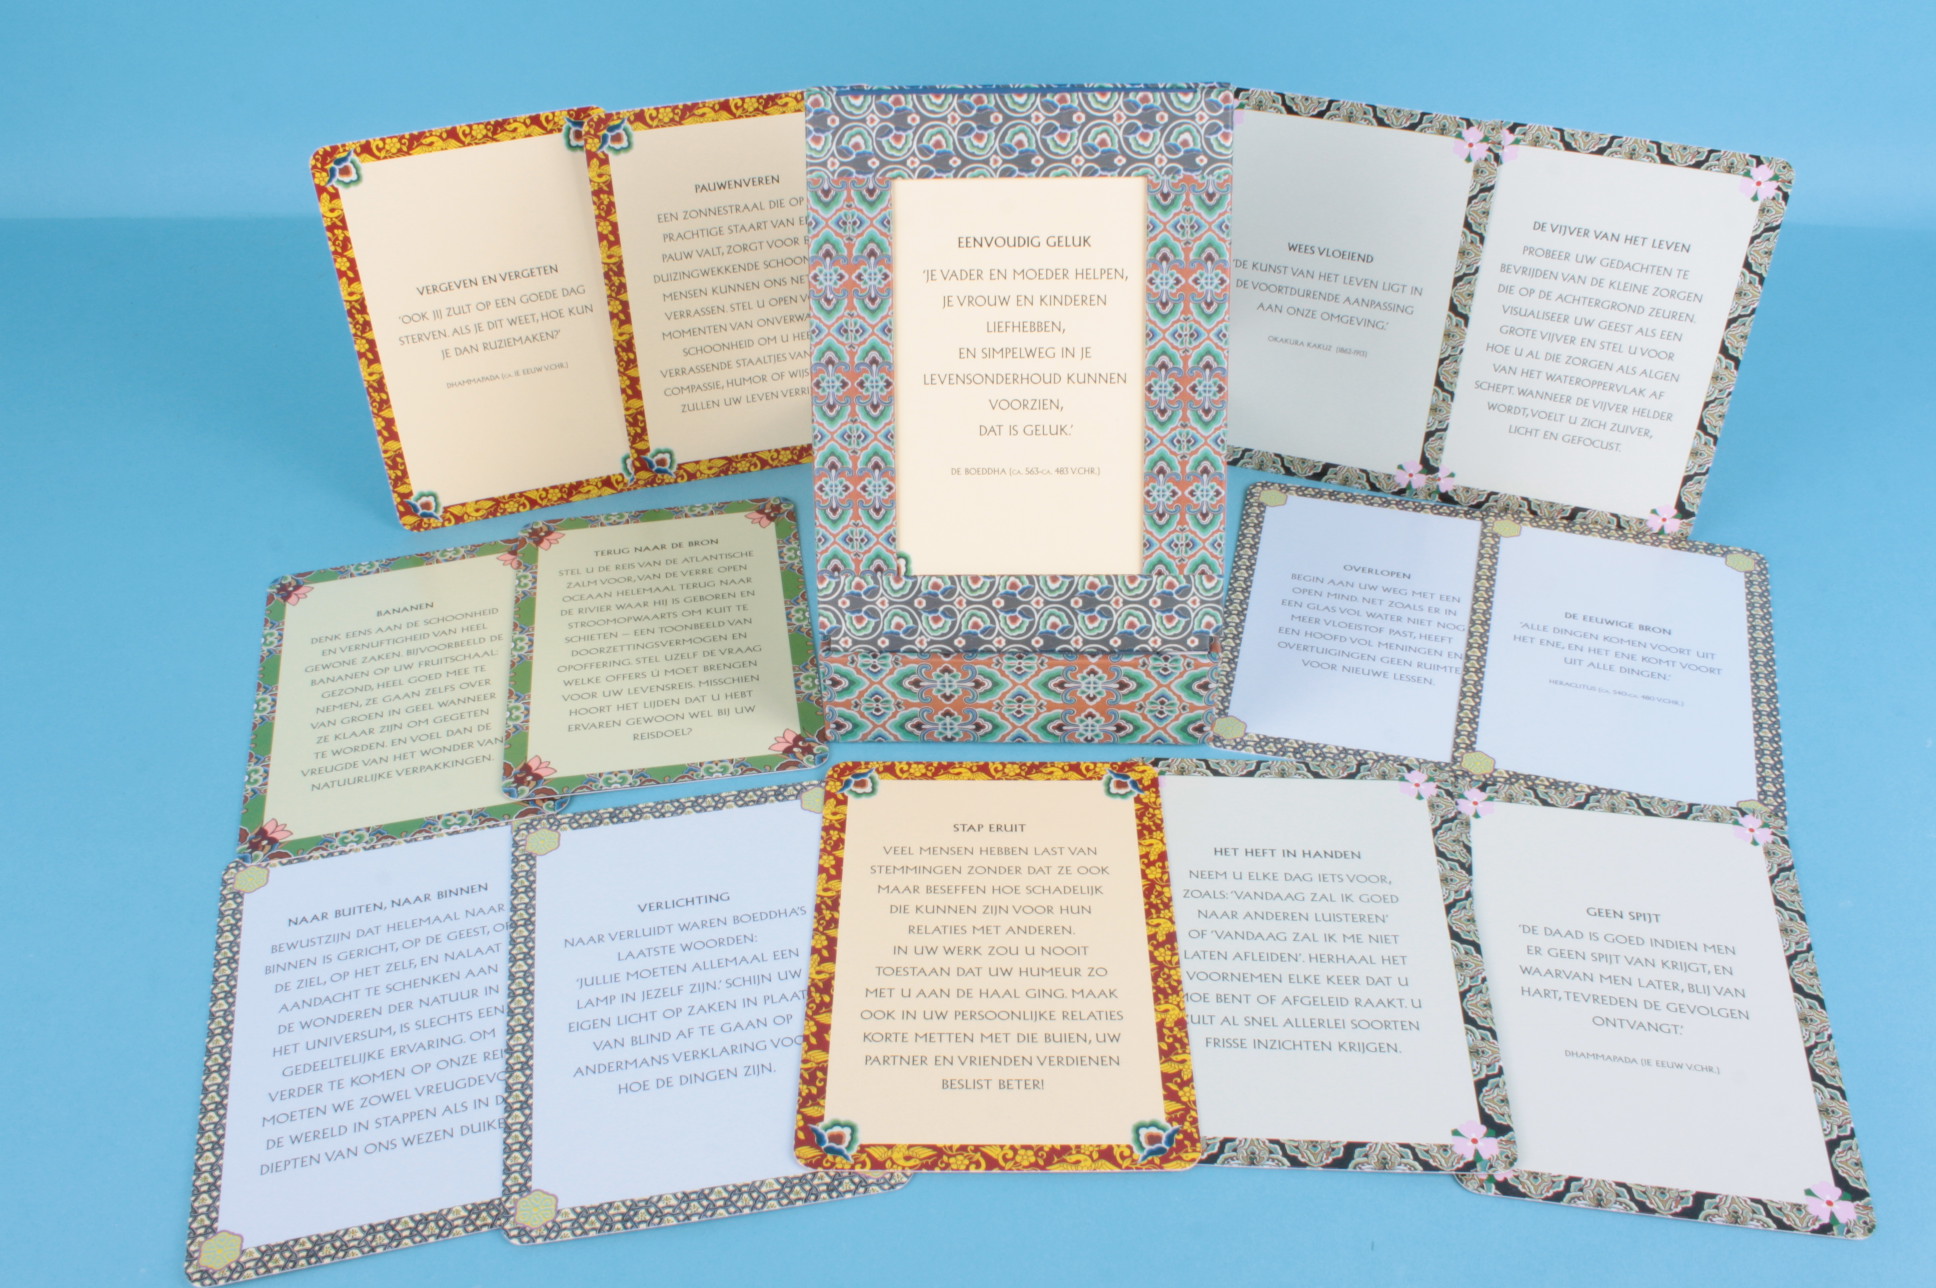 VERGEVEN EN VERGETEN
'OOK JIJ ZULT OP EEN GOEDE DAG
STERVEN. ALS JE DIT WEET, HOE KUN
JE DAN RUZIEMAKEN?'
DHAMMAPADA (CA. 1E EEUW V.CHR.)
PAUWENVEREN
EEN ZONNESTRAAL DIE OP
PRACHTIGE STAART VAN
PAUW VALT, ZORGT VOOR
DUIZINGWEKKENDE
MENSEN KUNNEN ONS
VERRASSEN. STEL U OPEN
MOMENTEN VAN
SCHOONHEID OM U
VERRASSENDE STAALTJES VAN
COMPASSIE, HUMOR OF
ZULLEN UW LEVEN
EENVOUDIG GELUK
'JE VADER EN MOEDER HELPEN,
JE VROUW EN KINDEREN
LIEFHEBBEN,
EN SIMPELWEG IN JE
LEVENSONDERHOUD KUNNEN
VOORZIEN,
DAT IS GELUK.'
DE BOEDDHA (CA. 563-CA. 483 V.CHR.)
WEES VLOEIEND
'DE KUNST VAN HET LEVEN LIGT IN
DE VOORTDURENDE AANPASSING
AAN ONZE OMGEVING.'
OKAKURA KAKUZ (1862-1913)
DE VIJVER VAN HET LEVEN
PROBEER UW GEDACHTEN TE
BEVRIJDEN VAN DE KLEINE ZORGEN
DIE OP DE ACHTERGROND ZEUREN.
VISUALISEER UW GEEST ALS EEN
GROTE VIJVER EN STEL U VOOR
HOE U AL DIE ZORGEN ALS ALGEN
VAN HET WATEROPPERVLAK AF
SCHEPT. WANNEER DE VIJVER HELDER
WORDT, VOELT U ZICH ZUIVER,
LICHT EN GEFOCUST.
BANANEN
DENK EENS AAN DE SCHOONHEID
EN VERNUFTIGHEID VAN HEEL
GEWONE ZAKEN. BIJVOORBEELD DE
BANANEN OP UW FRUITSCHAAL:
GEZOND, HEEL GOED MEE TE
NEMEN, ZE GAAN ZELFS OVER
VAN GROEN IN GEEL WANNEER
ZE KLAAR ZIJN OM GEGETEN
TE WORDEN. EN VOEL DAN DE
VREUGDE VAN HET WONDER VAN
NATUURLIJKE VERPAKKINGEN.
TERUG NAAR DE BRON
STEL U DE REIS VAN DE ATLANTISCHE
ZALM VOOR, VAN DE VERRE OPEN
OCEAAN HELEMAAL TERUG NAAR
DE RIVIER WAAR HIJ IS GEBOREN EN
STROOMOPWAARTS OM KUIT TE
SCHIETEN – EEN TOONBEELD VAN
DOORZETTINGSVERMOGEN EN
OPOFFERING. STEL UZELF DE VRAAG
WELKE OFFERS U MOET BRENGEN
VOOR UW LEVENSREIS. MISSCHIEN
HOORT HET LIJDEN DAT U HEBT
ERVAREN GEWOON WEL BIJ UW
REISDOEL?
OVERLOPEN
BEGIN AAN UW WEG MET EEN
OPEN MIND. NET ZOALS ER IN
EEN GLAS VOL WATER NIET NOG
MEER VLOEISTOF PAST, HEEFT
EEN HOOFD VOL MENINGEN EN
OVERTUIGINGEN GEEN RUIMTE
VOOR NIEUWE LESSEN.
DE EEUWIGE BRON
'ALLE DINGEN KOMEN VOORT UIT
HET ENE, EN HET ENE KOMT VOORT
UIT ALLE DINGEN.'
HERACLITUS (CA. 540-CA. 480 V.CHR.)
NAAR BUITEN, NAAR BINNEN
BEWUSTZIJN DAT HELEMAAL NAAR
BINNEN IS GERICHT, OP DE GEEST, OP
DE ZIEL, OP HET ZELF, EN NALAAT
AANDACHT TE SCHENKEN AAN
DE WONDEREN DER NATUUR IN
HET UNIVERSUM, IS SLECHTS EEN
GEDEELTELIJKE ERVARING. OM
VERDER TE KOMEN OP ONZE
MOETEN WE ZOWEL
DE WERELD IN STAPPEN ALS IN
DIEPTEN VAN ONS WEZEN
VERLICHTING
NAAR VERLUIDT WAREN BOEDDHA'S
LAATSTE WOORDEN:
'JULLIE MOETEN ALLEMAAL EEN
LAMP IN JEZELF ZIJN.' SCHIJN UW
EIGEN LICHT OP ZAKEN IN PLAATS
VAN BLIND AF TE GAAN OP
ANDERMANS VERKLARING
HOE DE DINGEN ZIJN.
STAP ERUIT
VEEL MENSEN HEBBEN LAST VAN
STEMMINGEN ZONDER DAT ZE OOK
MAAR BESEFFEN HOE SCHADELIJK
DIE KUNNEN ZIJN VOOR HUN
RELATIES MET ANDEREN.
IN UW WERK ZOU U NOOIT
TOESTAAN DAT UW HUMEUR ZO
MET U AAN DE HAAL GING. MAAK
OOK IN UW PERSOONLIJKE RELATIES
KORTE METTEN MET DIE BUIEN, UW
PARTNER EN VRIENDEN VERDIENEN
BESLIST BETER!
HET HEFT IN HANDEN
NEEM U ELKE DAG IETS VOOR,
ZOALS: 'VANDAAG ZAL IK GOED
NAAR ANDEREN LUISTEREN'
OF 'VANDAAG ZAL IK ME NIET
LATEN AFLEIDEN'. HERHAAL HET
VOORNEMEN ELKE KEER DAT U
MOE BENT OF AFGELEID RAAKT. U
ZULT AL SNEL ALLERLEI SOORTEN
FRISSE INZICHTEN KRIJGEN.
GEEN SPIJT
'DE DAAD IS GOED INDIEN MEN
ER GEEN SPIJT VAN KRIJGT, EN
WAARVAN MEN LATER, BLIJ VAN
HART, TEVREDEN DE GEVOLGEN
ONTVANGT.'
DHAMMAPADA (1E EEUW V.CHR.)